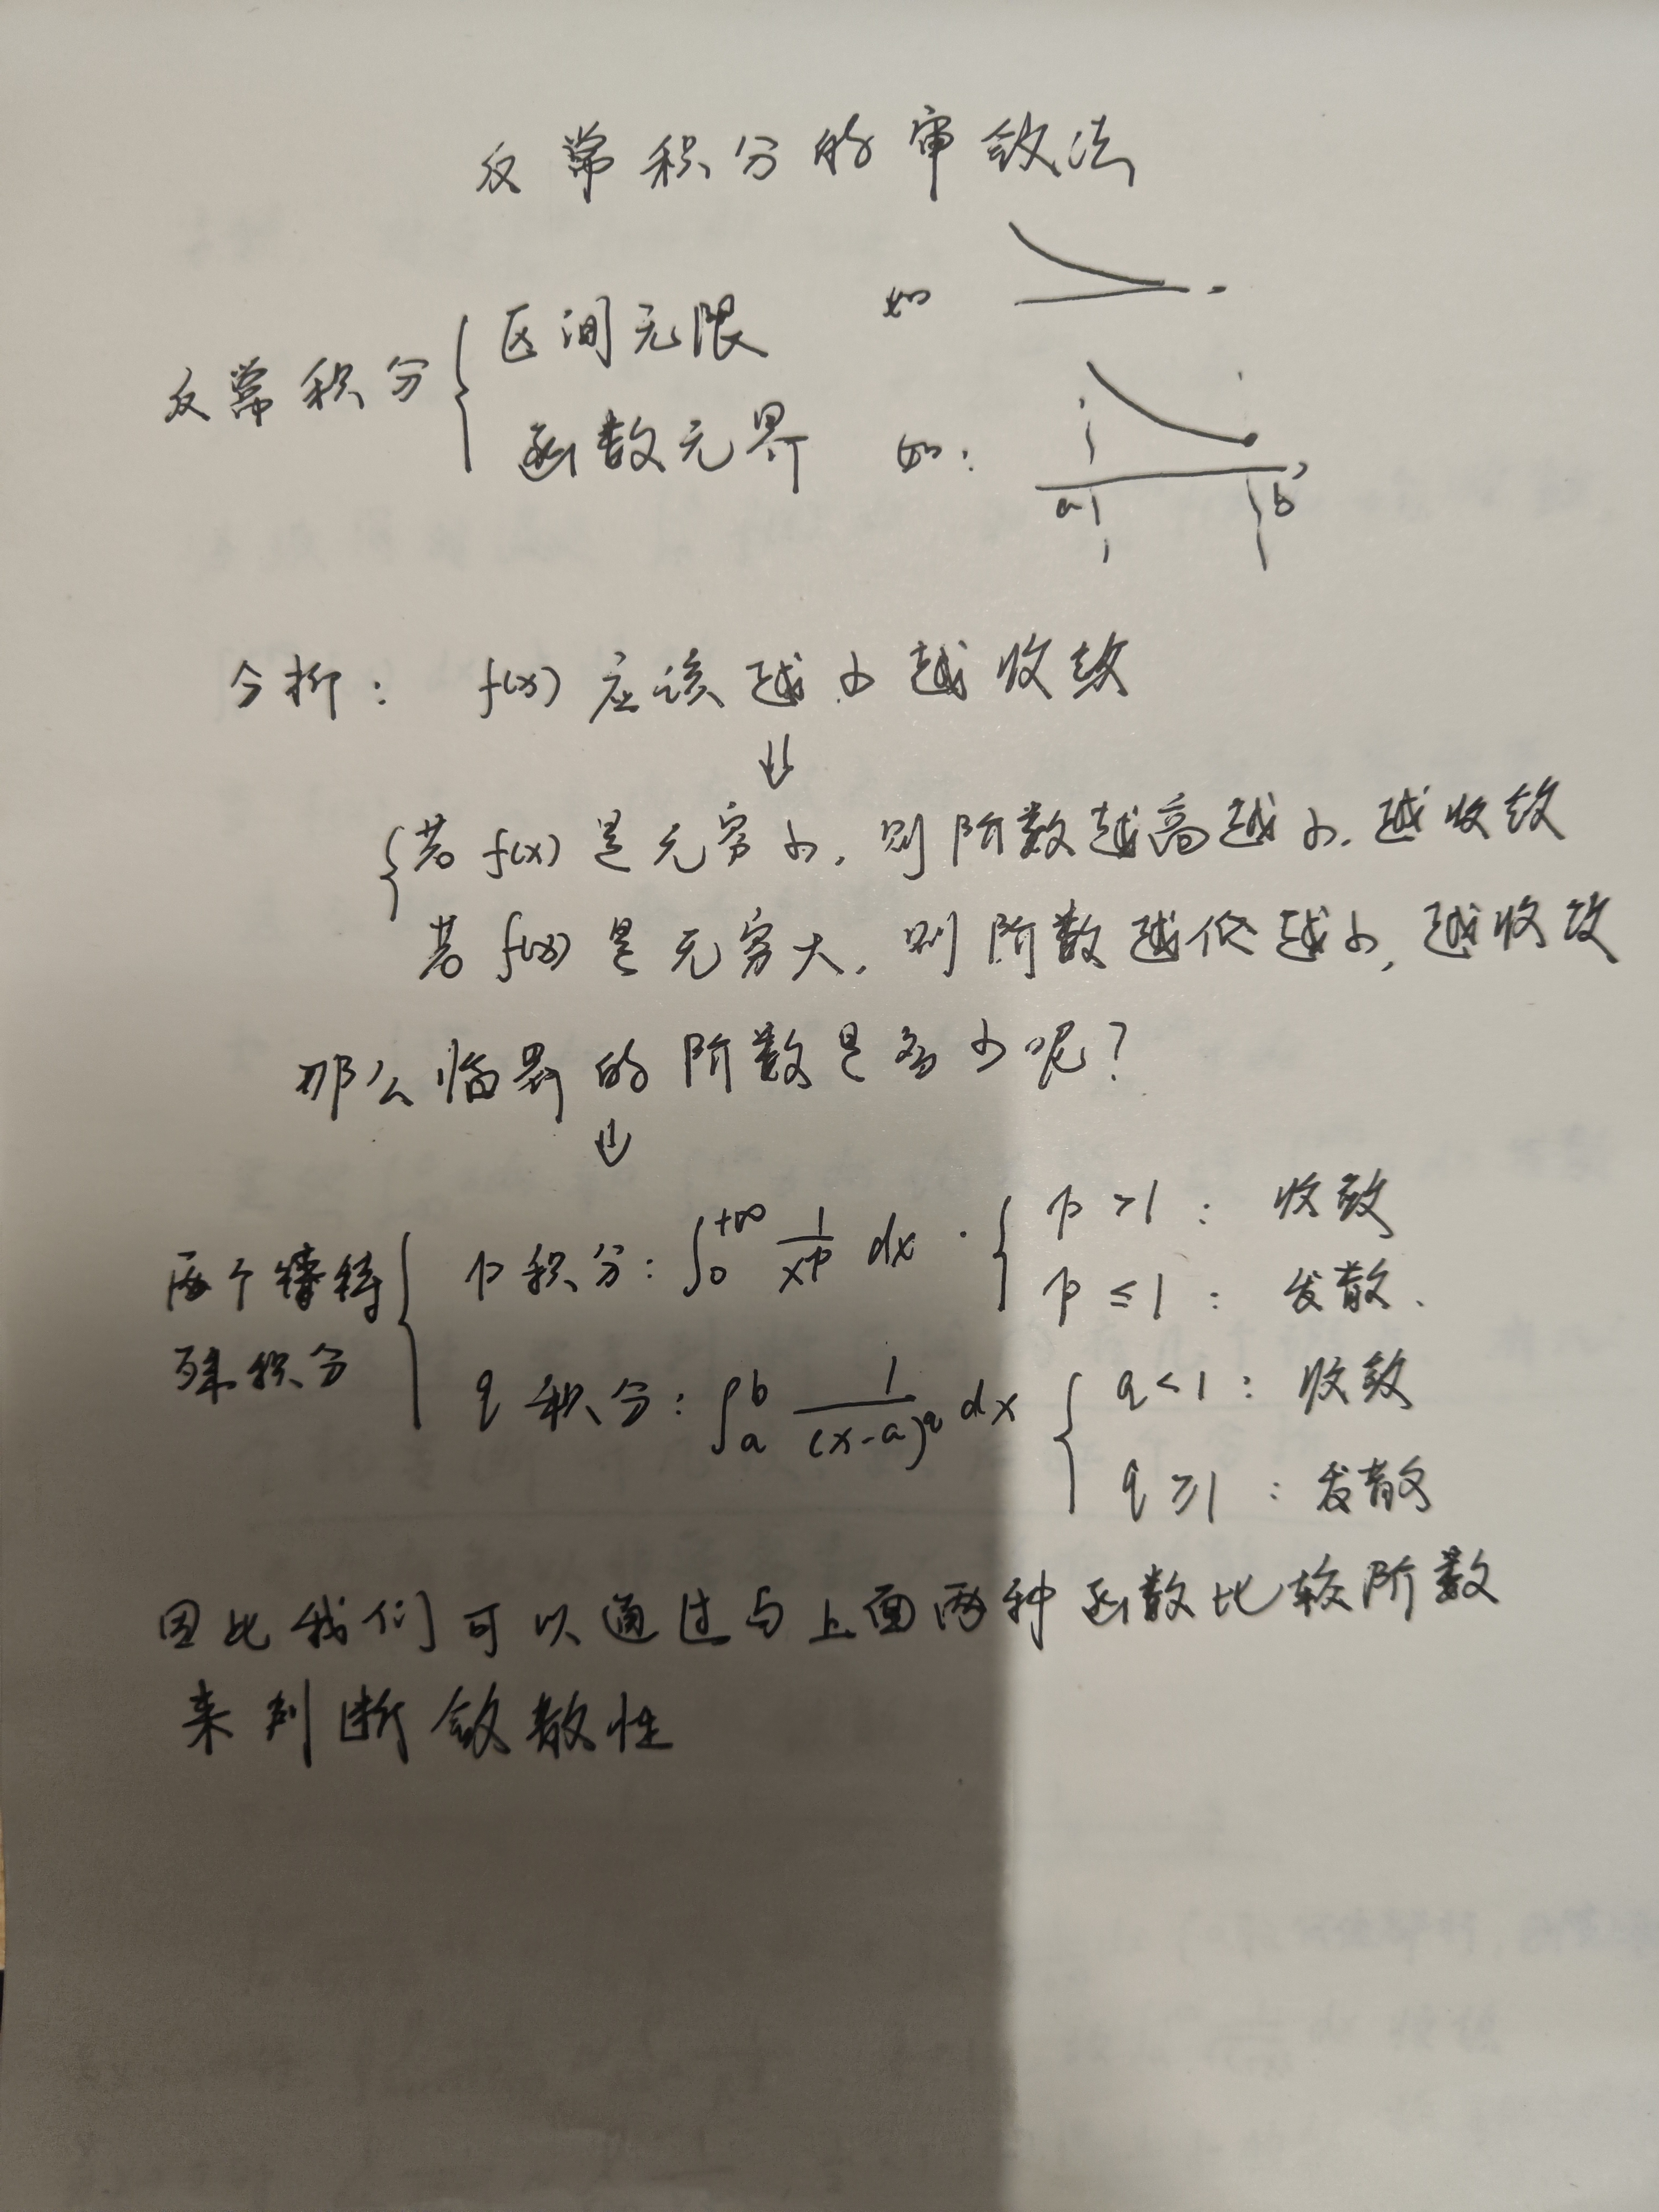 反常积分的审敛法
反常积分 { 区间无限 如
函数无界 如: a b
分析: f(x) 应该越小越收敛
⇓
{ 若 f(x) 是无穷小, 则阶数越高越小, 越收敛
若 f(x) 是无穷大, 则阶数越低越小, 越收敛
那么临界的阶数是多少呢?
⇓
两个特殊积分 { p积分: ∫₀^{+∞} 1/x^p dx · { p > 1 : 收敛
p ≤ 1 : 发散.
q积分: ∫ₐ^b 1/(x-a)^q dx { q < 1 : 收敛
q ≥ 1 : 发散
因此我们可以通过与上面两种函数比较阶数
来判断敛散性